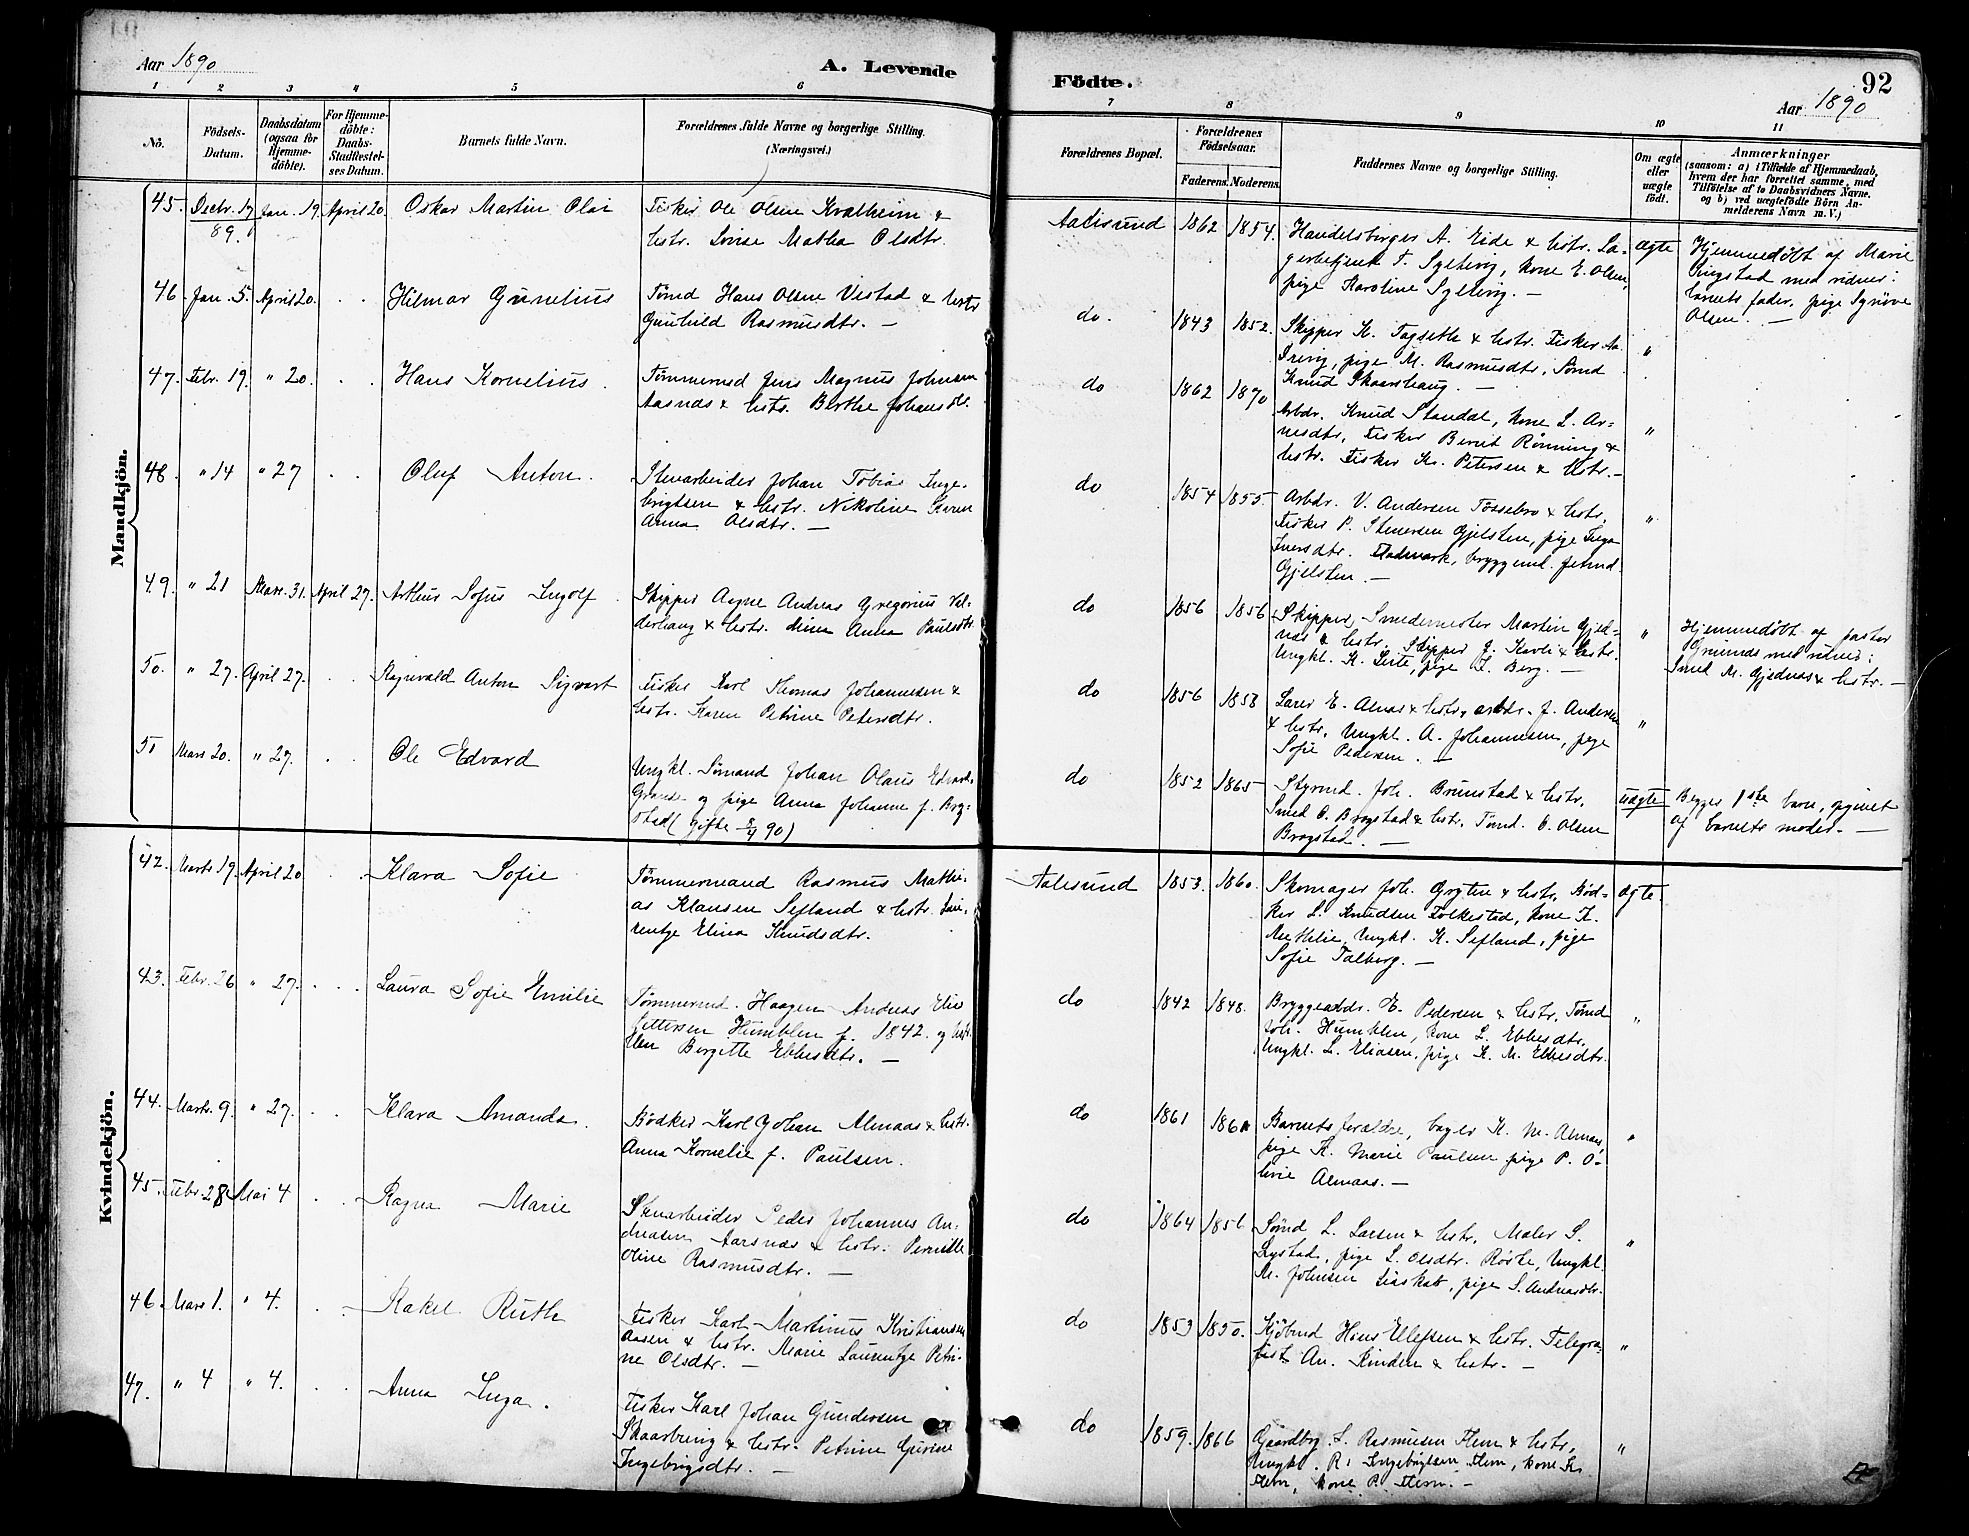 Aar 1890
A. Levende
Födte.
92
Aar 1890
1 2 3 4 5 6 7 8 9 10 11
No.
Födsels-
Datum.
Daabsdatum
(ogsaa for
Hjemme-
döbte).
For Hjemme-
döbte:
Daabs-
Stadfæstel-
ses Datum.
Barnets fulde Navn.
Forældrenes fulde Navne og borgerlige Stilling.
(Næringsvei.)
Forældrenes Bopæl.
Forældrenes
Födselsaar.
Faderens.
Moderens.
Faddernes Navne og borgerlige Stilling.
Om ægte
eller
uægte
födt.
Anmærkninger
(saasom: a) i Tilfælde af Hjemmedaab,
hvem der har forrettet samme, med
Tilföielse af to Daabsvidners Navne.
og b) ved uægtefödte Börn An-
melderens Navn m. V.)
Mandkjön.
45. Decbr. 17 Jan. 19. April 20. Oskar Martin Olai
89.
Fisker Ole Olsen Kvalheim &
hstr. Lovise Matha Olsdtr.
Aalesund 1862 1854.
Handelsborger A. Eide & hstr. La-
gerbetjent T. Syltevig, kone E. Olsen,
pige Karoline Syltevig. —
ægte
Hjemmedöbt af Marie
Ringstad med vidner:
barnets fader, pige Synöve
Olsen. —
46 Jan. 5. April 20. Hilmar Gunelius
Tömd Hans Olsen Vestad & hstr
Gunhild Rasmusdtr. —
do. 1843 1852.
Skipper K. Tagseth & hstr. Fisker
pige M. Rasmusdtr., Tömd
Knud Skaarhaug. —
"
47. Febr. 19. " 20. Hans Kornelius.
Tömmermd Jens Magnus Johnsen
Aasnæs & hstr. Berthe Johansdtr.
do 1862 1870
Arbdr. Knud Standal, kone L. Ar-
nesdtr, Fisker Bernt Rönning &
hstr. Fisker Kr. Petersen & hstr. —
"
48. " 14 " 27 Oluf Anton.
Stenarbeider Johan Tobias Inge-
brigtsen & hstr. Nikoline Karen
Anna Olsdtr. —
do 1854 1855.
Arbdr. V. Andersen Tossebro & hstr,
Fisker P. Stenersen Gjelsten, pige Inga
Iversdtr. Flademark, bryggemd.
Gjelsten. —
"
49. " 21 Mars. 31. April 27. Arthur Sofus Ingolf
Skipper Aagne Andreas Gregorius Val-
derhaug & hstr. Anna Paulsdtr.
do 1856 1856
Skipper, Smedemester Martin Gjed-
næs & hstr. Skipper J. Kavli & hstr.
Ungkl. K. Leite, pige K. Berg. —
"
Hjemmedöbt af pastor
Grimnes med vidner:
Smed M. Gjednæs & hstr. —
50. " 27. April 27. Ragnvald Anton Sigvart
Fisker Karl Thomas Johannesen &
hstr. Karen Petrine Petersdtr.
do 1856 1858
Lærer E. Alnæs & hstr, arbdr. J. Andersen
& hstr, Ungkl. A. Johannesen, pige
Sofie Pedersen. —
"
51 Mars 20. " 27. Ole Edvard
Ungkl. Sömand Johan Olaus Edvard
og pige Anna Johanne f. Brog-
stad (gifte 8/4 90)
do 1852 1865
Styrmd. Joh. Brunstad & hstr,
Smed O. Brogstad & hstr. Tömd. O. Olsen
Brogstad. —
uægte
Begges 1ste barn, opgivet
af barnets moder. —
Kvindekjön.
42. Marts 19. April 20 Klara Sofie
Tömmermand Rasmus Mathi-
as Klausen Sefland & hstr. Lau-
rentze Elina Knudsdtr.
Aalesund 1853. 1860.
Skomager Joh. Gryten & hstr, Bød-
ker L. Knudsen Folkestad, kone K.
Ungkl. K. Sefland, pige
Sofie Talberg. —
ægte.
43. Febr. 26 " 27. Laura Sofie Emilie
Tömmermd. Haagen Andreas Elis
Pettersen Humblen f. 1842. og hstr.
Ellen Bergitte Ebbesdtr. —
do 1842 1848.
Bryggearbdr. E. Pedersen & hstr, Tömd
Joh. Humblen, kone L. Ebbesdtr,
Ungkl. L. Eliasen, pige K. M. Ebbesdtr.
"
44. Marts. 9. " 27. Klara Amanda.
Bødker Karl Johan Almaas & hstr.
Anna Kornelie f. Paulsen.
do 1861 1860
Barnets forældre, bager K. M. Almaas,
pige K. Marie Paulsen, pige P. O-
livie Almaas. —
"
45. Febr. 28 Mai 4 Ragna Marie
Stenarbeider Peder Johannes An-
dreasen Aarsnæs & hstr. Pernille
Oline Rasmusdtr. —
do 1864 1856
Sömd L. Larsen & hstr, Maler S.
Lystad, pige L. Olsdtr. Röske, Ungkl.
M. Johnsen Liaskab, pige S. Andreasdtr.
"
46. Mars 1. " 4. Rakel Ruth
Fisker Karl Martinus Kristiansen
Aasen & hstr. Marie Laurentze Petri-
ne Olsdtr. —
do 1853 1850.
Kjöbmd Hans Ellefsen & hstr. Telegra-
fist An. Kinden & hstr. —
"
47. " 4 " 4. Anna Inga.
Fisker Karl Johan Gundersen
Skaarbrevig & hstr. Petrine Gurine
Ingebrigsdtr. —
do 1859. 1866
Gaardbr. L. Rasmusen Flem & hstr,
Ungkl. R. Ingebrigtsen Flem, kone K.
Flem, kone P. Flem. —
"